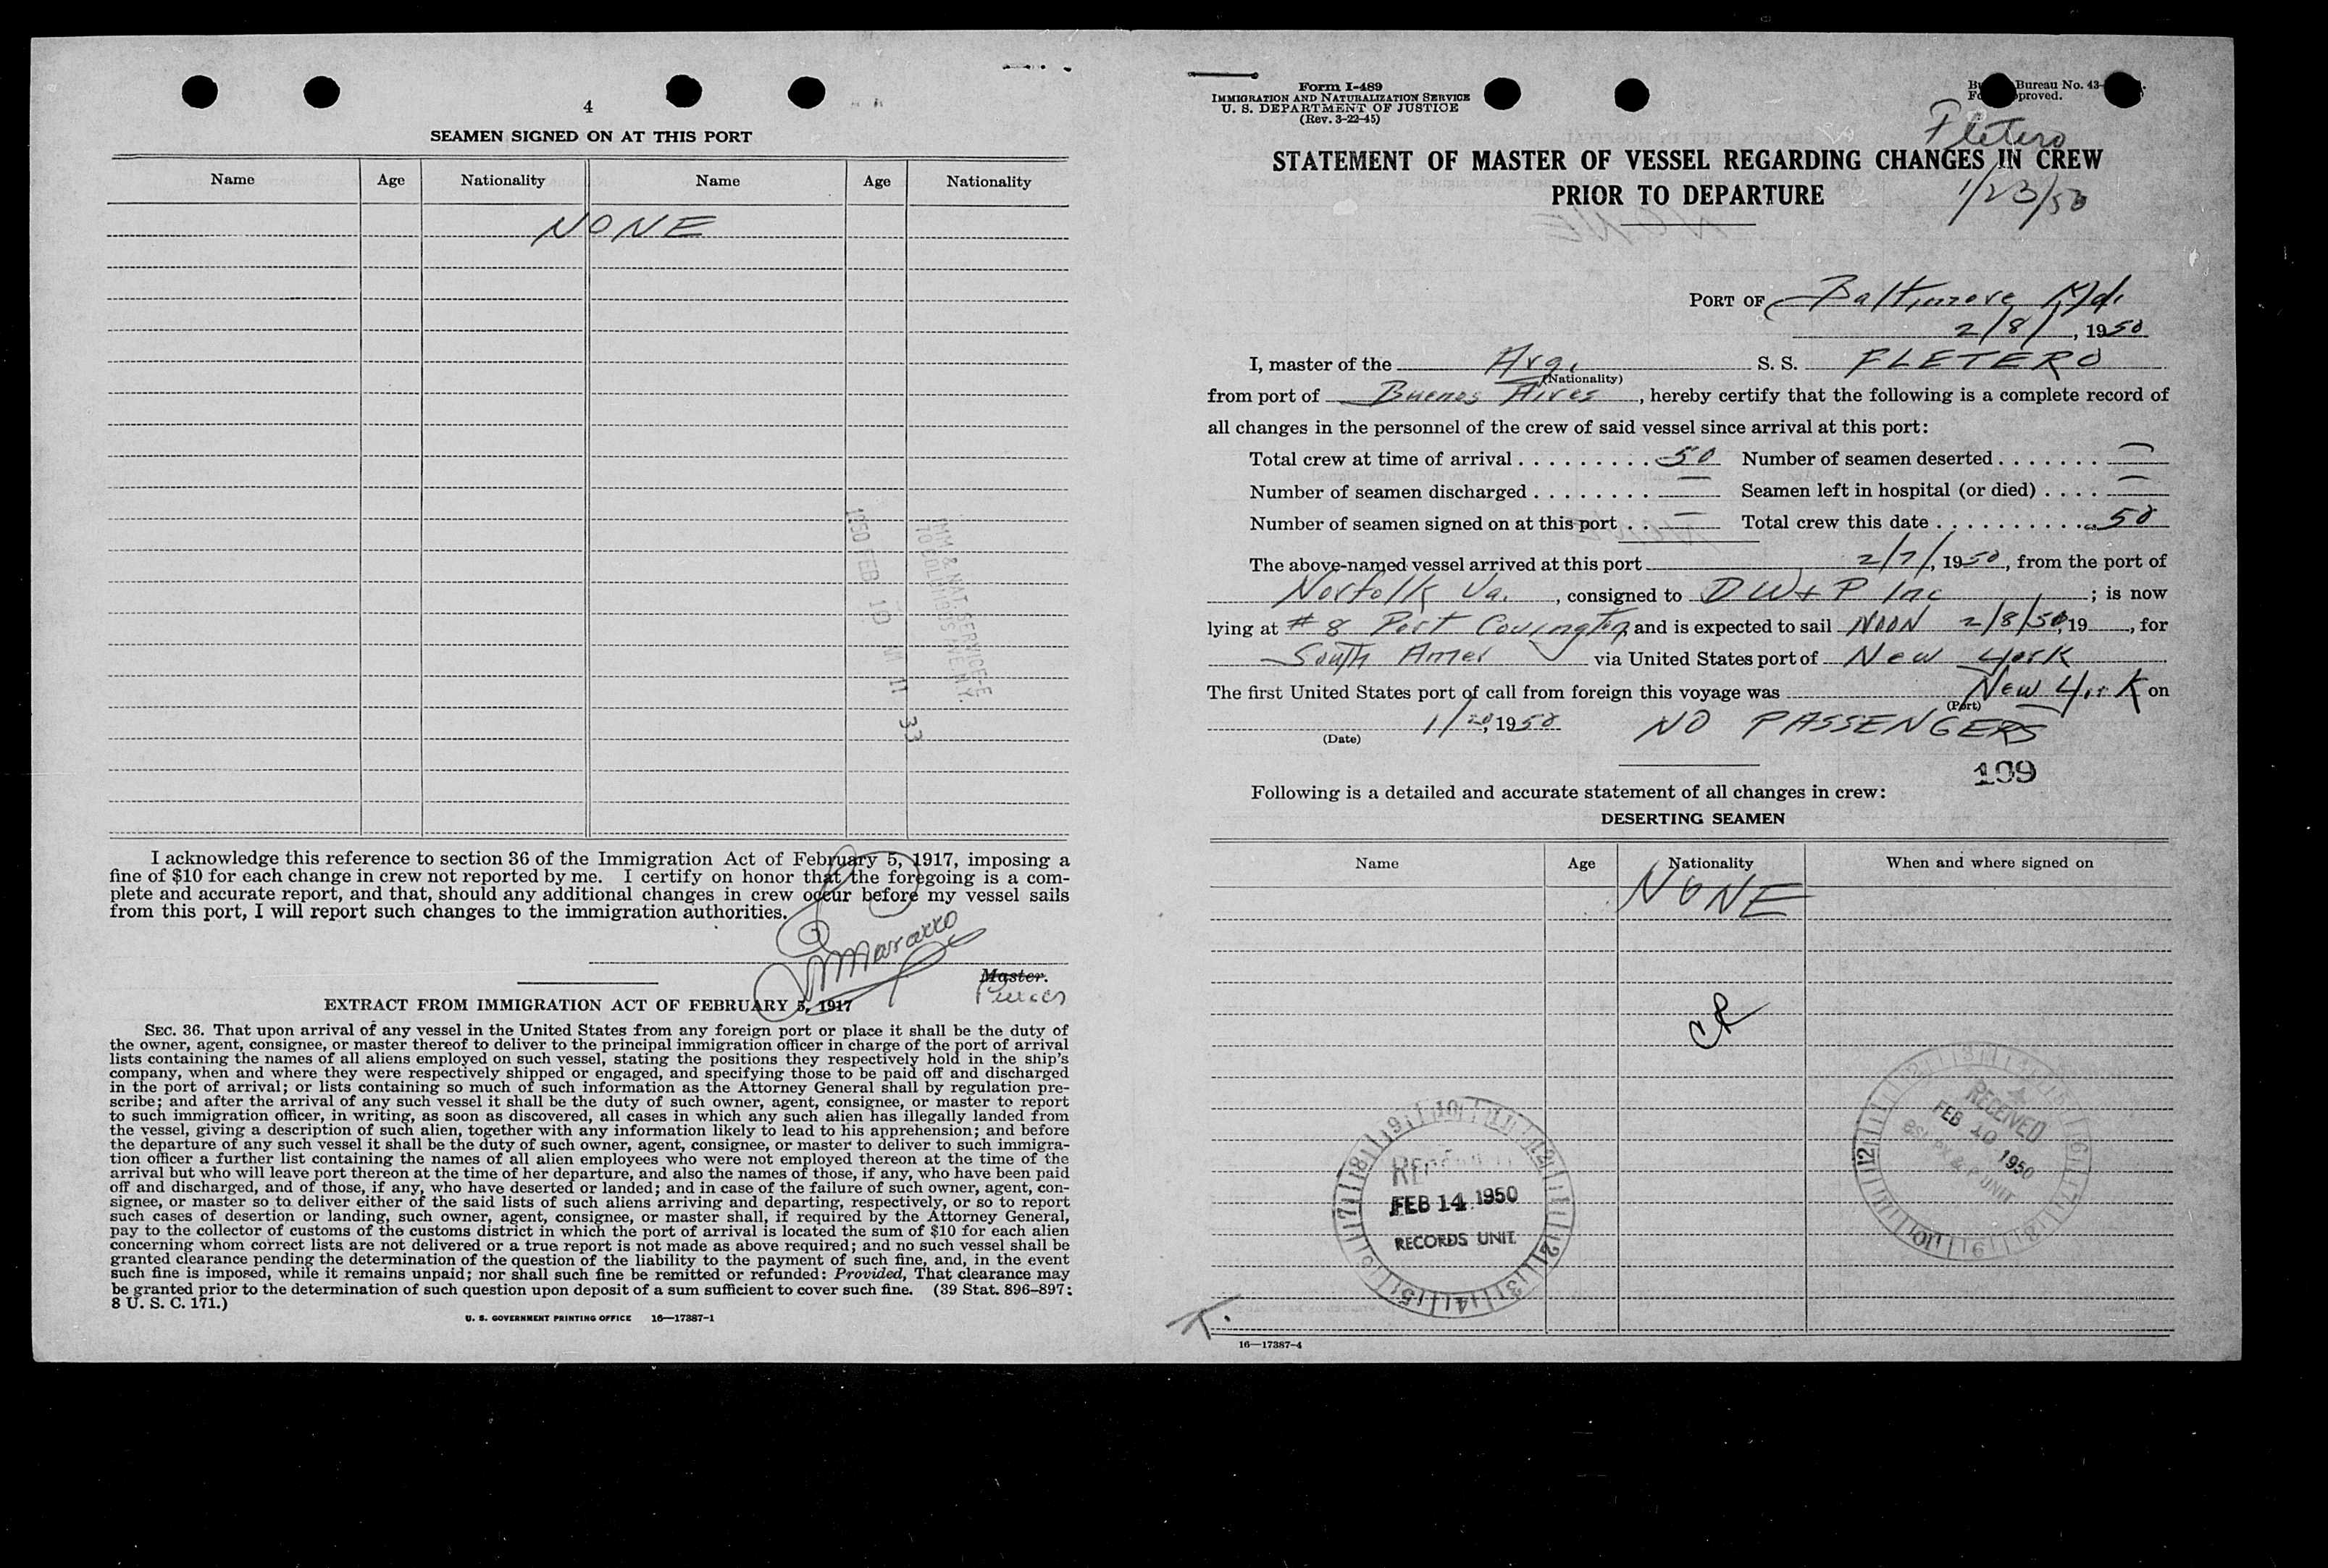 4
SEAMEN SIGNED ON AT THIS PORT
Name Age Nationality Name Age Nationality
NONE
1950 FEB 10 M 11 33
IMM & NAT SERVICE-E
70 COLUMBUS AVE N.Y.
I acknowledge this reference to section 36 of the Immigration Act of February 5, 1917, imposing a
fine of $10 for each change in crew not reported by me. I certify on honor that the foregoing is a com-
plete and accurate report, and that, should any additional changes in crew occur before my vessel sails
from this port, I will report such changes to the immigration authorities.
Master.
Purser
EXTRACT FROM IMMIGRATION ACT OF FEBRUARY 5, 1917
SEC. 36. That upon arrival of any vessel in the United States from any foreign port or place it shall be the duty of
the owner, agent, consignee, or master thereof to deliver to the principal immigration officer in charge of the port of arrival
lists containing the names of all aliens employed on such vessel, stating the positions they respectively hold in the ship's
company, when and where they were respectively shipped or engaged, and specifying those to be paid off and discharged
in the port of arrival; or lists containing so much of such information as the Attorney General shall by regulation pre-
scribe; and after the arrival of any such vessel it shall be the duty of such owner, agent, consignee, or master to report
to such immigration officer, in writing, as soon as discovered, all cases in which any such alien has illegally landed from
the vessel, giving a description of such alien, together with any information likely to lead to his apprehension; and before
the departure of any such vessel it shall be the duty of such owner, agent, consignee, or master to deliver to such immigra-
tion officer a further list containing the names of all alien employees who were not employed thereon at the time of the
arrival but who will leave port thereon at the time of her departure, and also the names of those, if any, who have been paid
off and discharged, and of those, if any, who have deserted or landed; and in case of the failure of such owner, agent, con-
signee, or master so to deliver either of the said lists of such aliens arriving and departing, respectively, or so to report
such cases of desertion or landing, such owner, agent, consignee, or master shall, if required by the Attorney General,
pay to the collector of customs of the customs district in which the port of arrival is located the sum of $10 for each alien
concerning whom correct lists are not delivered or a true report is not made as above required; and no such vessel shall be
granted clearance pending the determination of the question of the liability to the payment of such fine, and, in the event
such fine is imposed, while it remains unpaid; nor shall such fine be remitted or refunded: Provided, That clearance may
be granted prior to the determination of such question upon deposit of a sum sufficient to cover such fine. (39 Stat. 896-897:
8 U. S. C. 171.)
U. S. GOVERNMENT PRINTING OFFICE 16—17387-1
Form I-489
IMMIGRATION AND NATURALIZATION SERVICE
U. S. DEPARTMENT OF JUSTICE
(Rev. 3-22-45)
Bureau No. 43-
proved.
Fletero
STATEMENT OF MASTER OF VESSEL REGARDING CHANGES IN CREW
PRIOR TO DEPARTURE
1/23/50
PORT OF Baltimore Md.
2/8/, 1950
I, master of the Arg. S. S. FLETERO
(Nationality)
from port of Buenos Aires, hereby certify that the following is a complete record of
all changes in the personnel of the crew of said vessel since arrival at this port:
Total crew at time of arrival . . . . . . . . . 50 Number of seamen deserted . . . . . . . —
Number of seamen discharged . . . . . . . . — Seamen left in hospital (or died) . . . . —
Number of seamen signed on at this port . . — Total crew this date . . . . . . . . . . . 50
The above-named vessel arrived at this port 2/7/, 1950, from the port of
Norfolk Va., consigned to DW+P Inc; is now
lying at #8 Port Covington and is expected to sail NOON 2/8/50, 19, for
South Amer via United States port of New York
The first United States port of call from foreign this voyage was New York on
(Port)
1/20, 1950 NO PASSENGERS
(Date)
109
Following is a detailed and accurate statement of all changes in crew:
DESERTING SEAMEN
Name Age Nationality When and where signed on
NONE
RECEIVED
FEB 10 1950
FEB 14 1950
RECORDS UNIT
T.
16—17387-4